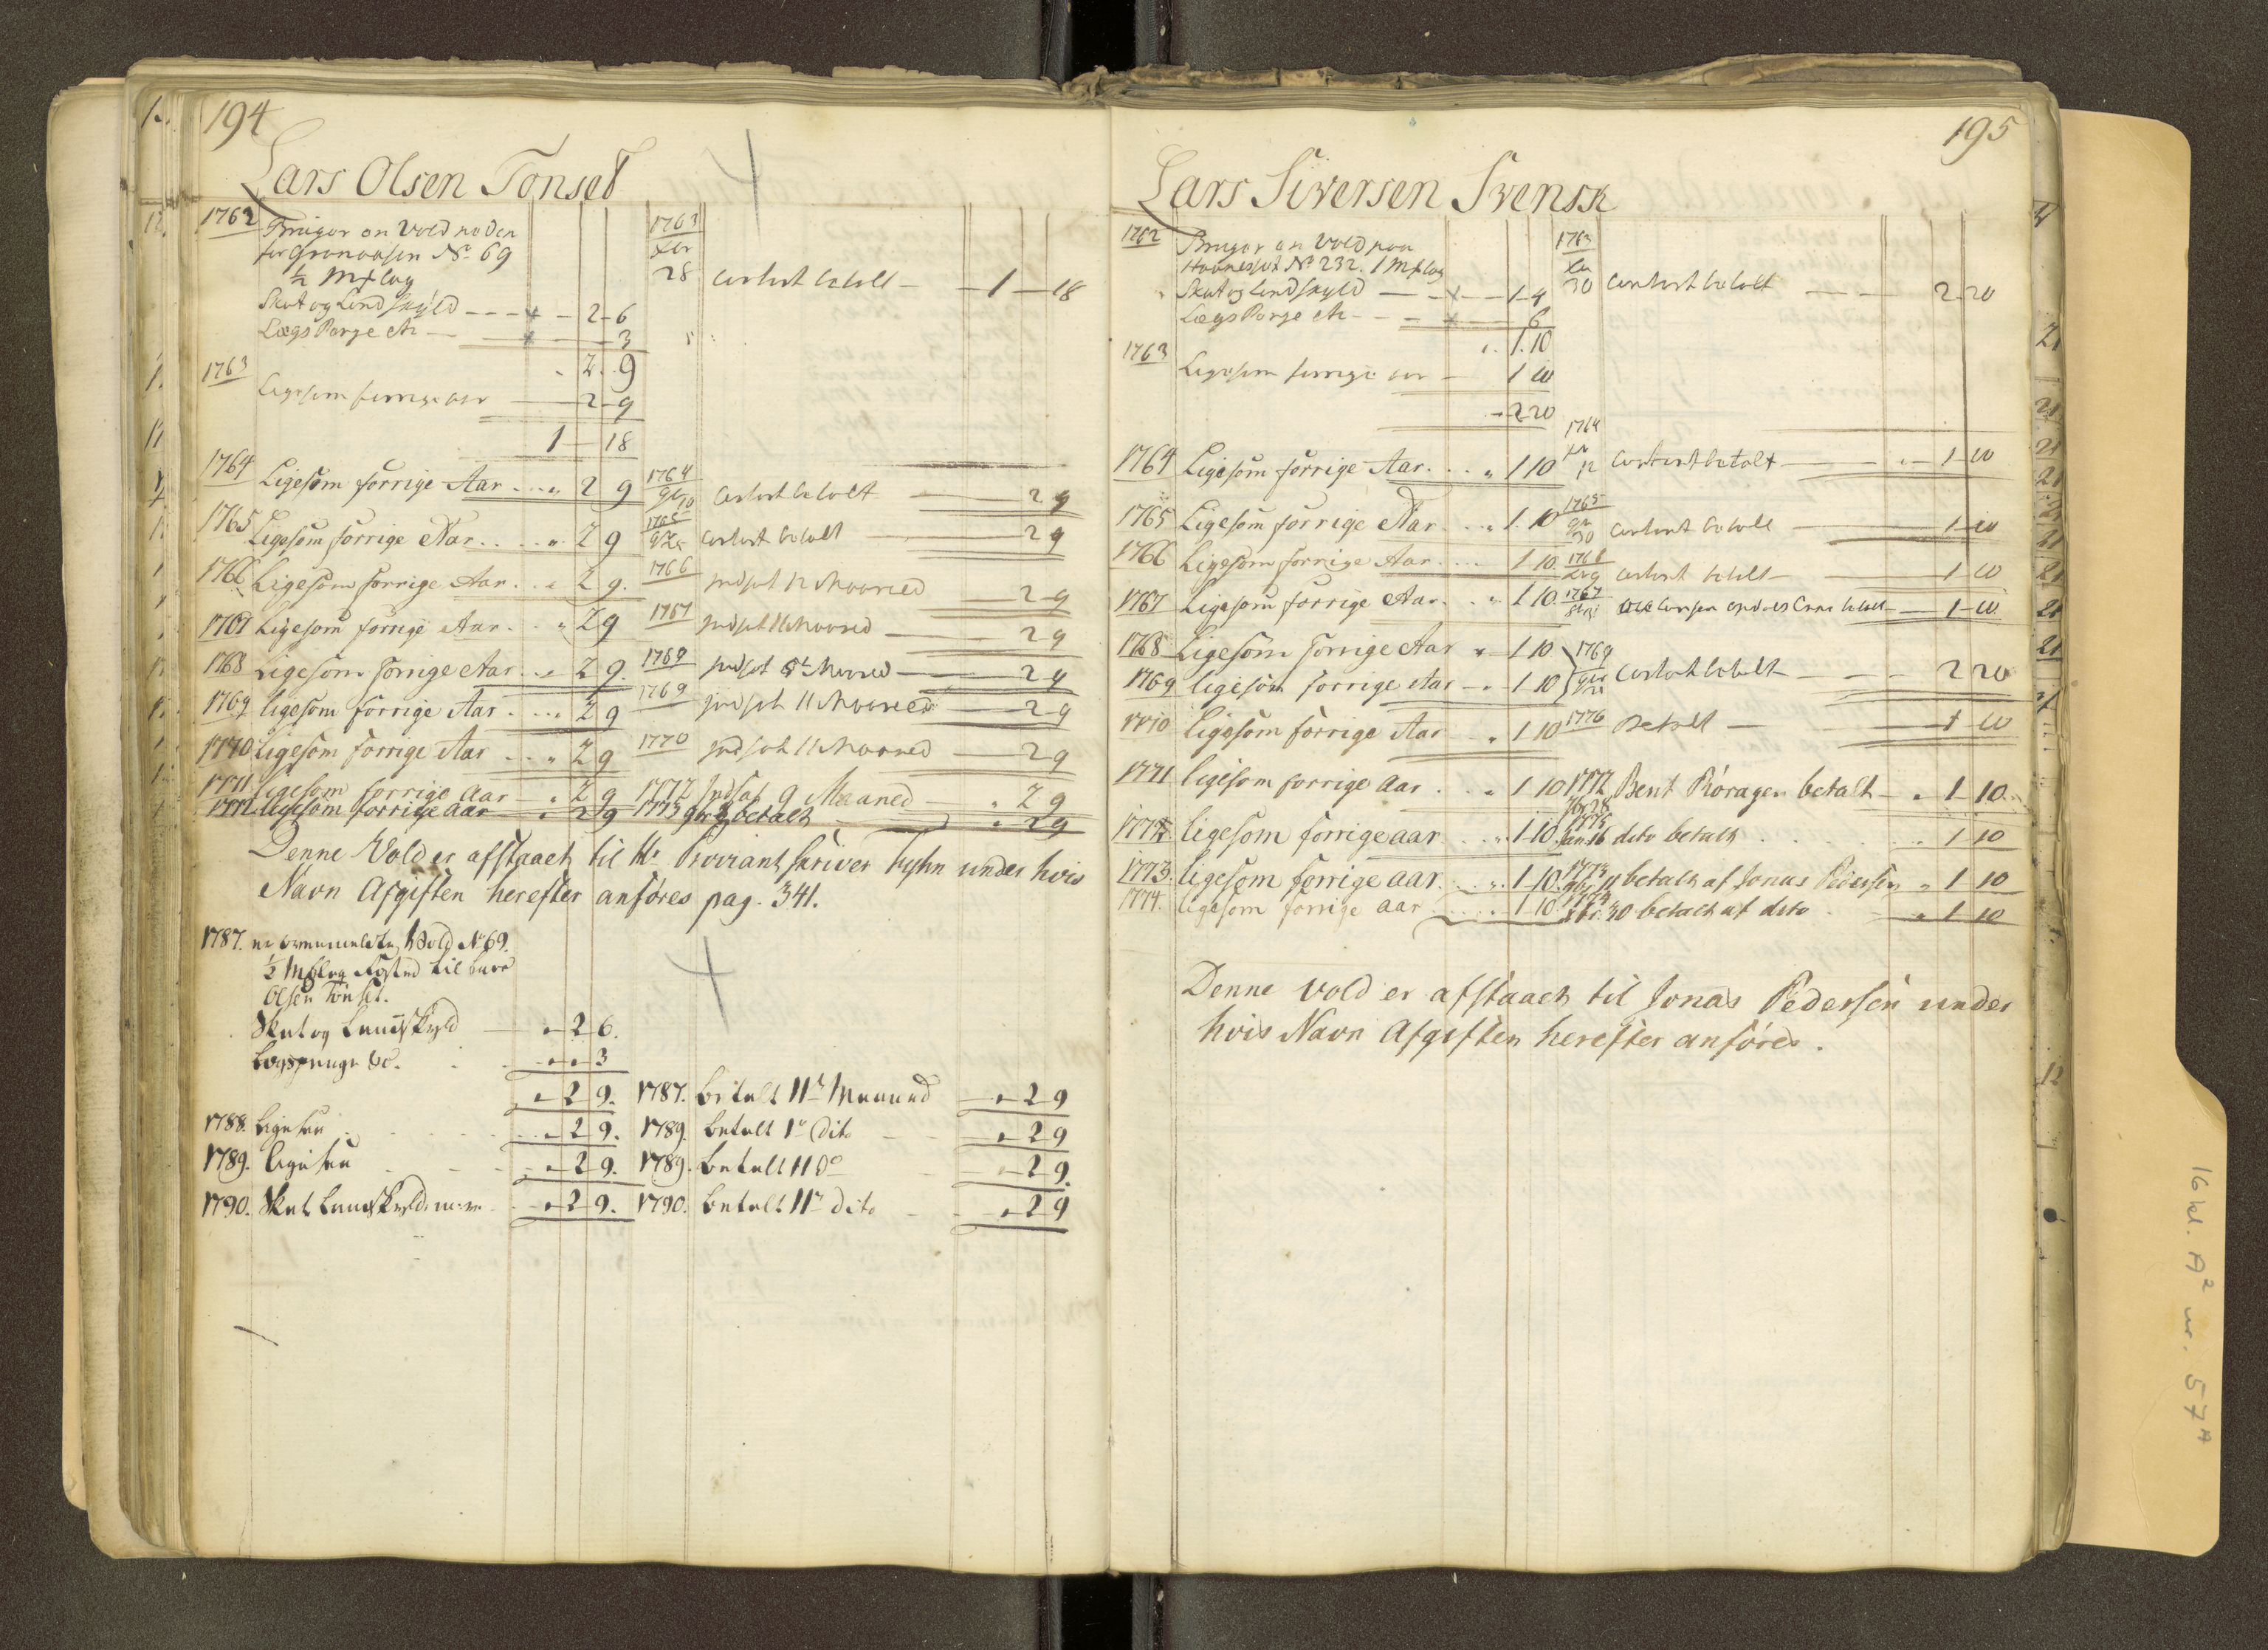 194
Lars Olsen Tonset
1762 Bruger en Vold neden
for Gronaasen No 69
½ M:lag
Skat og Landskyld - - - 2 - 6
Lægs Penge etc - 3
2 . 9
1763 Ligesom forrige aar - 2 - 9
1 - 18
1764 Ligesom forrige Aar . . . „ 2 9
1765 Ligesom forrige Aar . . . „ 2 9
1766 Ligesom forrige Aar . . „ 2 9.
1767 Ligesom forrige Aar . . „ 2 9
1768 Ligesom forrige Aar . . „ 2 9.
1769 ligesom forrige Aar . . . 2 9
1770 Ligesom forrige Aar . . „ 2 9
1771 ligesom forrige aar - „ 2 9
1772 ligesom forrige aar - „ 2 9
1763
Xbr
28 Contant betalt - 1 - 18
1764
Contant betalt - 2 9
1765
Contant betalt - 2 9
1766 Indsat 12 Maaned 2 9
1767 Indsat 11 Maaned - 2 9
1769 Indsat Maaned - 2 9
1769 Indsat 11 Maaned - 2 9
1770 Indsat 11 Maaned - 2 9
1772 Indsat 9 Maaned - „ 2 9
1773 betalt „ 2 9
Denne Vold er afstaaet til Hr Proviantskriver Tyhn under hvis
Navn Afgiften herefter anföres pag. 341.
1787. er ovenmeldte Vold No 69.
½ M:lag fæsted til Lars
Olsen Tönset.
Skat og Landskyld - „ 2 6.
Lægspenge &c. . . „ „ 3
„ 2 9.
1788. Ligesaa . . . „ 2 9.
1789. Ligesaa - - - „ 2 9.
1790. Skat Landskyld m: m. - „ 2 9.
1787. betalt 11te Maaned - „ 2 9
1789. betalt 1te Dito - - „ 2 9
1789. betalt 11 Do - 2 9.
1790. betalt 11te dito - - „ 2 9
195
Lars Siversen Svensk
1762 Bruger en Vold paa
No 232. 1 M:lag
Skat og Landskyld - - - 1 - 4
Lægs Penge etc - - - 6
1. 10
1763 Ligesom forrige aar - 1 10
2 20
1764 Ligesom forrige Aar. . . „ 1 10
1765 Ligesom forrige Aar . . „ 1. 10
1766 Ligesom forrige Aar . . . 1 10.
1767 Ligesom forrige Aar . . „ 1 10.
1768 Ligesom forrige Aar „ 1 10
1769 ligesom forrige Aar - „ 1 10
1770 Ligesom forrige Aar „ 1 10
1771 ligesom forrige aar . . „ 1 10
1772 ligesom forrige aar . . . 1 10.
1773. ligesom forrige aar. . . „ 1 10.
1774. ligesom forrige aar . . . 1 10.
1763
Xbr
30 Contant betalt - - - 2 20
1764
Xbr
12 Contant betalt - 1 - 10
1765
30 Contant betalt - 1 - 10
1766
Contant betalt - 1 10
1767
1 - 10.
1769
Contant betalt - - - 2 20
1770 Betalt - 1 10
1772 Bent Röragen betalt - „ 1 10.
1773
Jan 16 dito betalt . . . . 1 10
1773 11 betalt af Jonas Pedersen „ 1 10
1774
Xbr: 30 betalt af dito „ 1 10
Denne vold er afstaaet til Jonas Pedersen under
hvis Navn Afgiften herefter anföres.
16 kl. A² nr. 57ᴬ